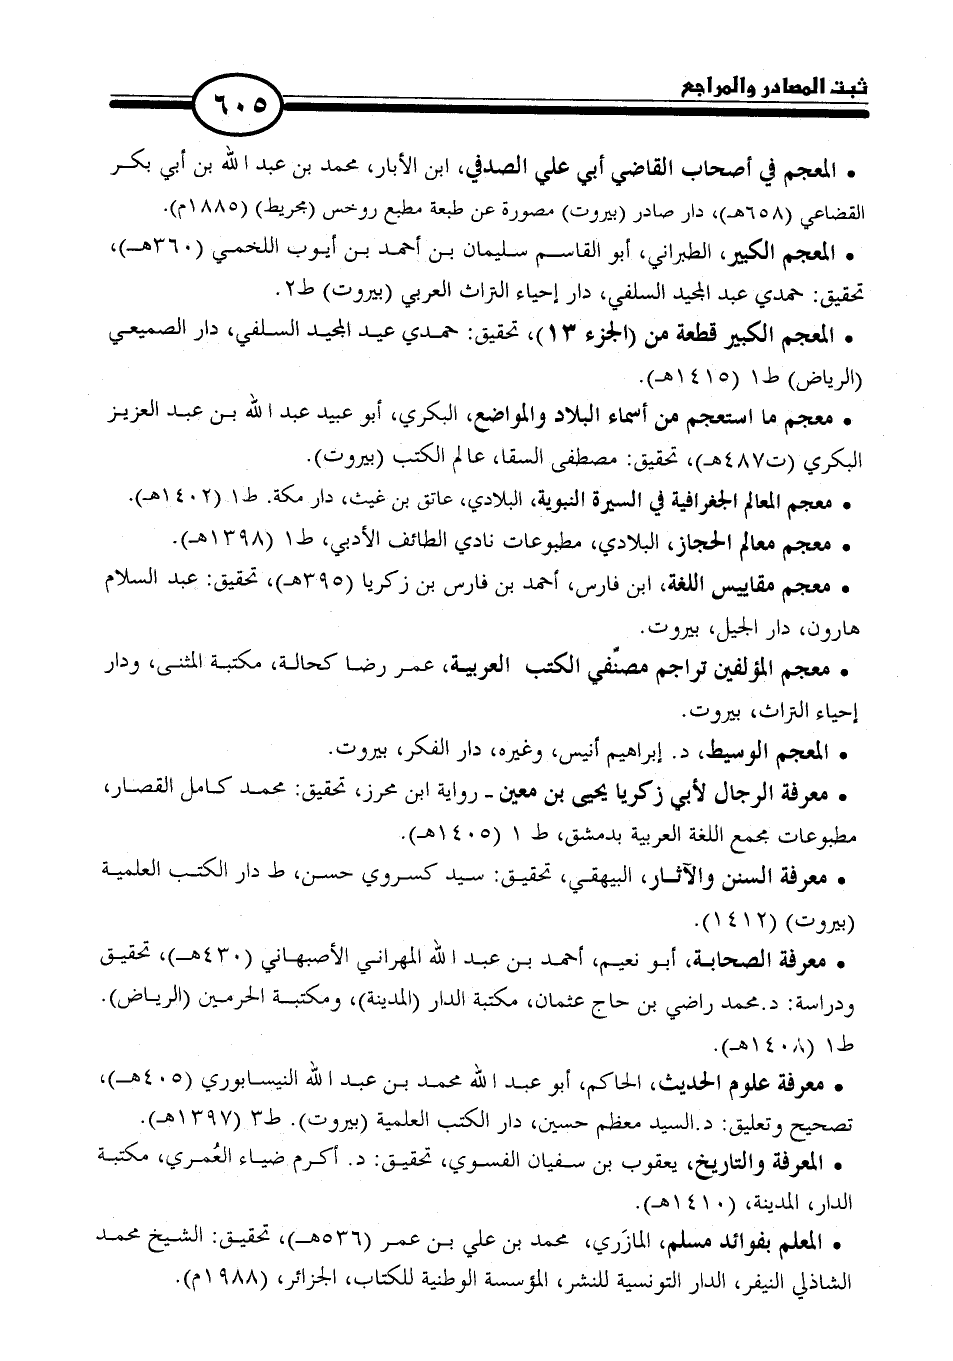 ثبت المصادر والمراجع
٦٠٥
• المعجم في أصحاب القاضي أبي علي الصدفي، ابن الأبار، محمد بن عبد الله بن أبي بكر
القضاعي (٦٥٨هـ)، دار صادر (بيروت) مصورة عن طبعة مطبع روخس (مجريط) (١٨٨٥م).
• المعجم الكبير، الطبراني، أبو القاسم سليمان بن أحمد بن أيوب اللخمي (٣٦٠هـ)،
تحقيق: حمدي عبد المجيد السلفي، دار إحياء التراث العربي (بيروت) ط٢.
• المعجم الكبير قطعة من (الجزء ١٣)، تحقيق: حمدي عبد المجيد السلفي، دار الصميعي
(الرياض) ط١ (١٤١٥هـ).
• معجم ما استعجم من أسماء البلاد والمواضع، البكري، أبو عبيد عبد الله بن عبد العزيز
البكري (ت٤٨٧هـ)، تحقيق: مصطفى السقا، عالم الكتب (بيروت).
• معجم المعالم الجغرافية في السيرة النبوية، البلادي، عاتق بن غيث، دار مكة. ط١ (١٤٠٢هـ).
• معجم معالم الحجاز، البلادي، مطبوعات نادي الطائف الأدبي، ط١ (١٣٩٨هـ).
• معجم مقاييس اللغة، ابن فارس، أحمد بن فارس بن زكريا (٣٩٥هـ)، تحقيق: عبد السلام
هارون، دار الجيل، بيروت.
• معجم المؤلفين تراجم مصنّفي الكتب العربية، عمر رضا كحالة، مكتبة المثنى، ودار
إحياء التراث، بيروت.
• المعجم الوسيط، د. إبراهيم أنيس، وغيره، دار الفكر، بيروت.
• معرفة الرجال لأبي زكريا يحيى بن معين ـ رواية ابن محرز، تحقيق: محمد كامل القصار،
مطبوعات مجمع اللغة العربية بدمشق، ط ١ (١٤٠٥هـ).
• معرفة السنن والآثار، البيهقي، تحقيق: سيد كسروي حسن، ط دار الكتب العلمية
(بيروت) (١٤١٢).
• معرفة الصحابة، أبو نعيم، أحمد بن عبد الله المهراني الأصبهاني (٤٣٠هـ)، تحقيق
ودراسة: د.محمد راضي بن حاج عثمان، مكتبة الدار (المدينة)، ومكتبة الحرمين (الرياض).
ط١ (١٤٠٨هـ).
• معرفة علوم الحديث، الحاكم، أبو عبد الله محمد بن عبد الله النيسابوري (٤٠٥هـ)،
تصحيح وتعليق: د.السيد معظم حسين، دار الكتب العلمية (بيروت). ط٣ (١٣٩٧هـ).
• المعرفة والتاريخ، يعقوب بن سفيان الفسوي، تحقيق: د. أكرم ضياء العُمري، مكتبة
الدار، المدينة، (١٤١٠هـ).
• المعلم بفوائد مسلم، المازَري، محمد بن علي بن عمر (٥٣٦هـ)، تحقيق: الشيخ محمد
الشاذلي النيفر، الدار التونسية للنشر، المؤسسة الوطنية للكتاب، الجزائر، (١٩٨٨م).